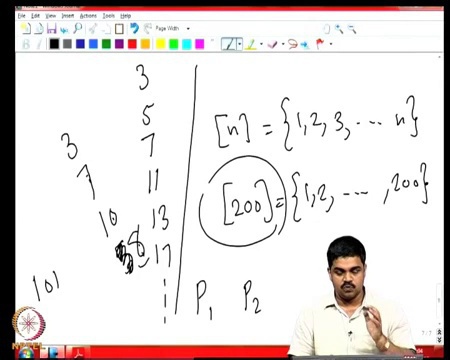 File Edit View Insert Actions Tools Help
Page Width
3
5
7
11
13
17
3
7
10
8
101
[n] = {1, 2, 3, ... n}
[200] = {1, 2, ..., 200}
P1 P2
7/7